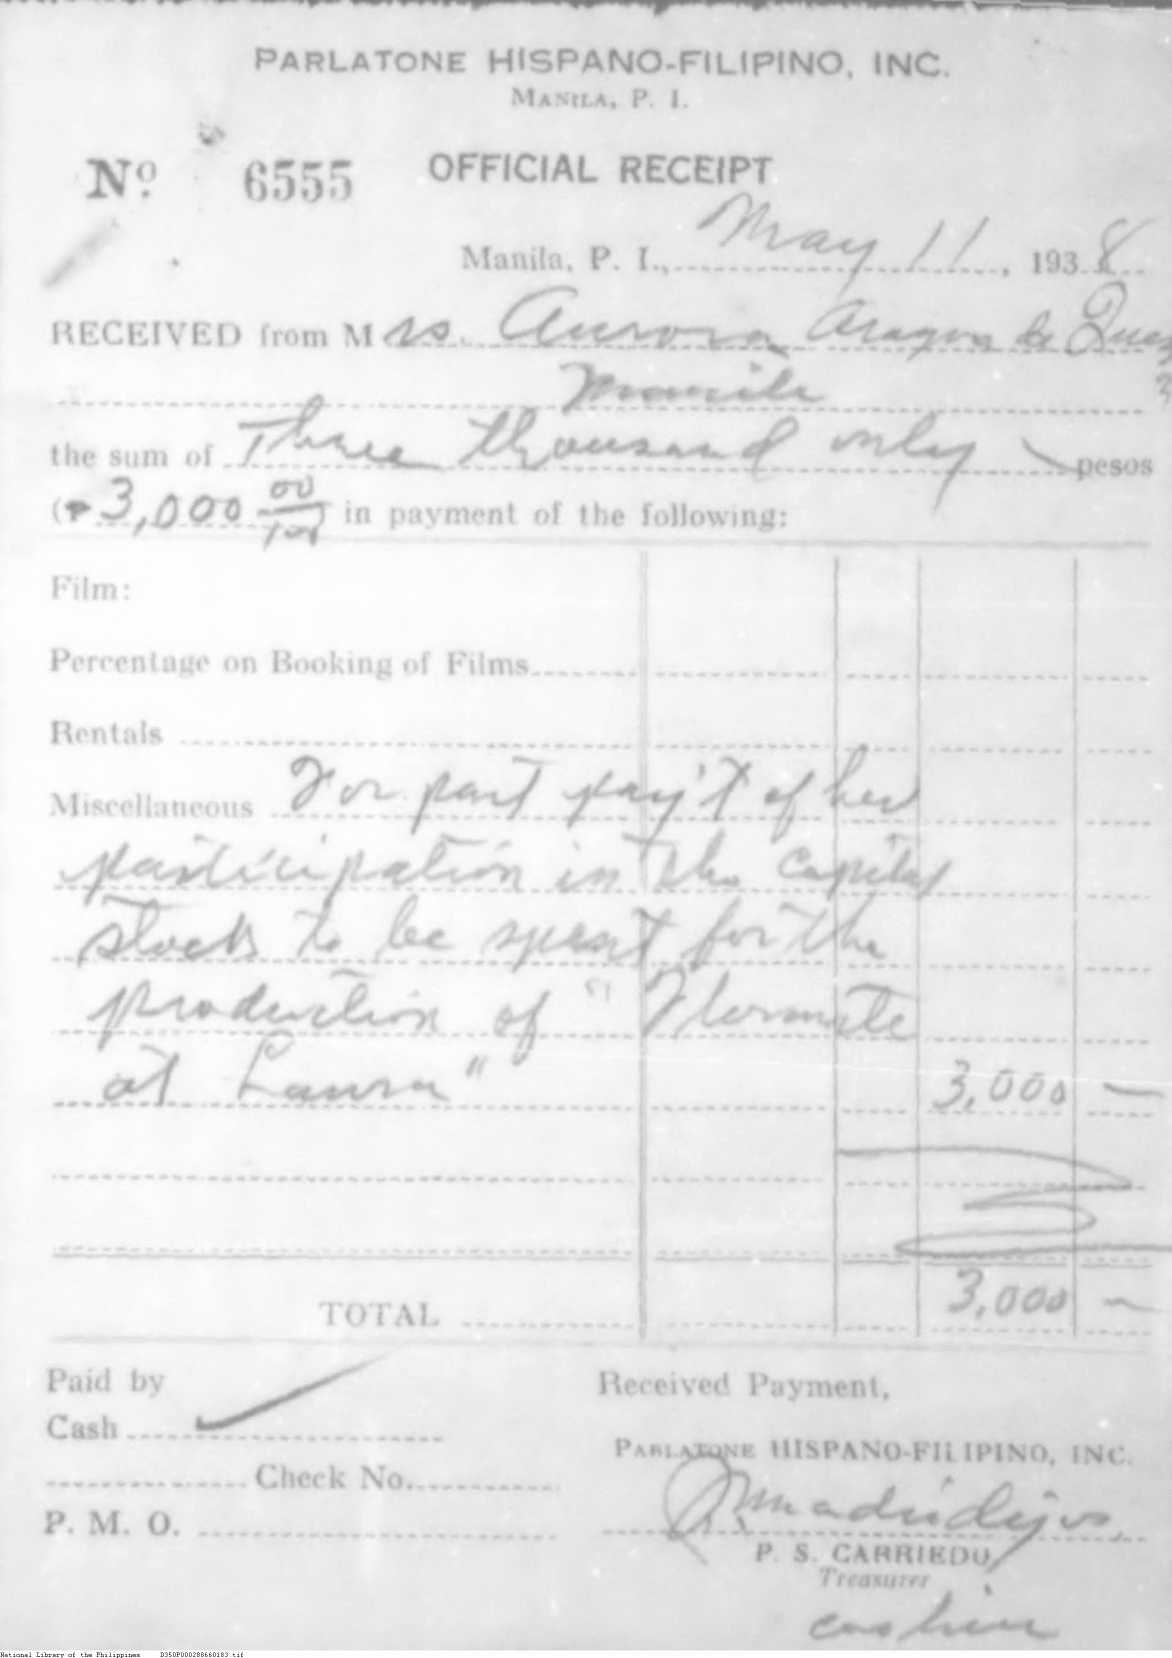 PARLATONE HISPANO-FILIPINO, INC.
MANILA, P. I.
No 6555 OFFICIAL RECEIPT
Manila, P. I., May 11, 1938
RECEIVED from Mrs. Aurora Aragon de Quezon
Manila
the sum of Three thousand only pesos
(₱ 3,000 00/100) in payment of the following:
Film:
Percentage on Booking of Films
Rentals
Miscellaneous For part pay't of her
participation in the capital
stock to be spent for the
production of "Florante
at Laura" 3,000 —
TOTAL 3,000 —
Paid by
Cash
Check No.
P. M. O.
Received Payment,
PARLATONE HISPANO-FILIPINO, INC.
P. S. CARRIEDO
Treasurer
cashier
National Library of the Philippines D350P000288660183.tif